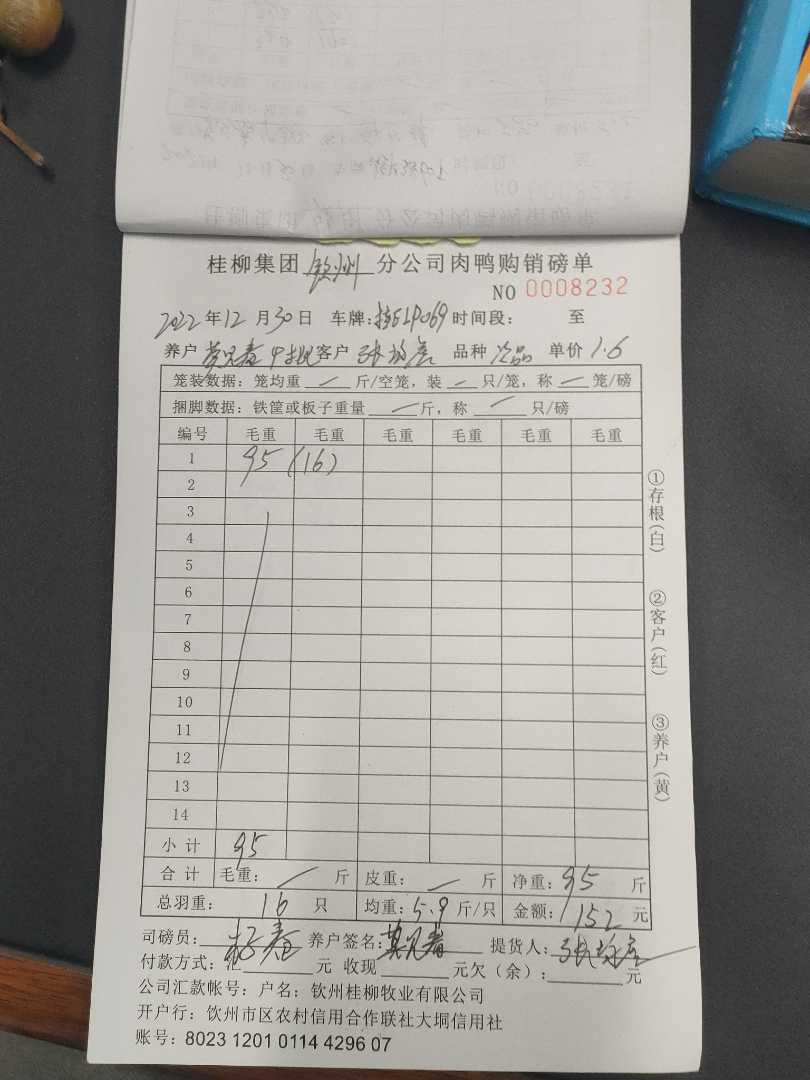 桂柳集团 钦州 分公司肉鸭购销磅单
NO 0008232
2022 年 12 月 30 日 车牌: 时间段: 至
养户 客户 品种 次品 单价 1.6
笼装数据: 笼均重 — 斤/空笼, 装 — 只/笼, 称 — 笼/磅
捆脚数据: 铁筐或板子重量 — 斤, 称 — 只/磅
编号 毛重 毛重 毛重 毛重 毛重 毛重
1 95 (16)
2
3
4
5
6
7
8
9
10
11
12
13
14
小计 95
合计 毛重: — 斤 皮重: — 斤 净重: 95 斤
总羽重: 16 只 均重: 5.9 斤/只 金额: 152 元
司磅员: 养户签名: 提货人:
付款方式: 汇 元 收现 元欠(余): 元
公司汇款帐号: 户名: 钦州桂柳牧业有限公司
开户行: 钦州市区农村信用合作联社大垌信用社
账号: 8023 1201 0114 4296 07
①存根(白)
②客户(红)
③养户(黄)